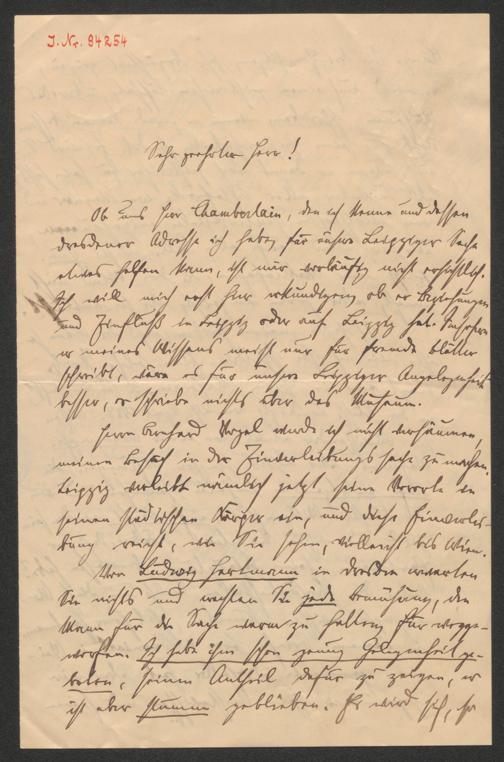 J. Nr. 94254
Sehr geehrter Herr!
Ob uns Herr Chamberlain, den ich kenne und dessen
dresdener Adresse ich habe, für unsere Leipziger Sache
etwas helfen kann, ist mir vorläufig nicht ersichtlich.
Ich will mich erst hier erkundigen, ob er Beziehungen
und Einfluß in Leipzig oder auf Leipzig hat. Insofern
er meines Wissens meist nur für fremde Blätter
schreibt, wäre es für unsere Leipziger Angelegenheit
besser, er schriebe nichts über das Museum.
Herrn Bernhard Vogel werde ich nicht versäumen,
meinen Besuch in der Einverleibungssache zu machen.
Leipzig verleibt nämlich jetzt seine Vororte in
seinen städtischen Körper ein, und diese Einverlei-
bung reicht, wie Sie sehen, vielleicht bis Wien.
Von Ludwig Hartmann in Dresden erwarten
Sie nichts und erachten Sie jede Bemühung, den
Mann für die Sache warm zu halten, für wegge-
worfen. Ich habe ihm schon genug Gelegenheit ge-
boten, seinen Antheil dafür zu zeigen, er
ist aber stumm geblieben. Es wird sich, so